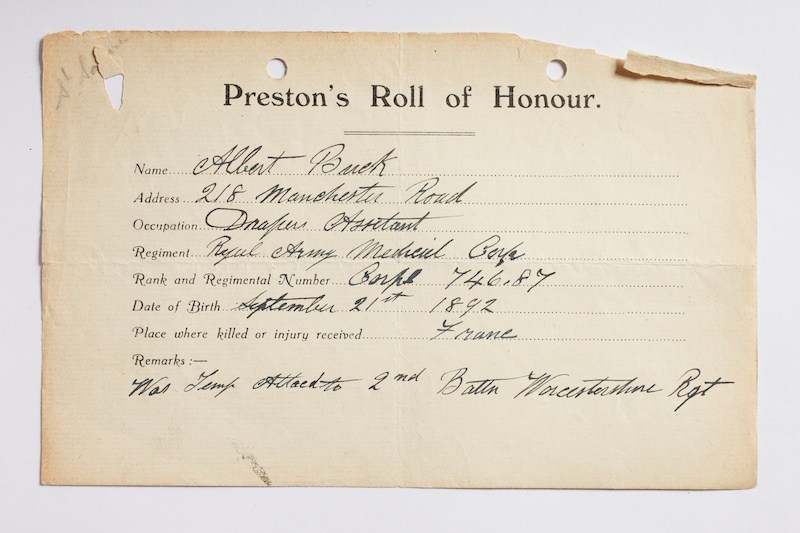 Preston's Roll of Honour.
Name Albert Buck
Address 218 Manchester Road
Occupation Drapers Assitant
Regiment Royal Army Medical Corp
Rank and Regimental Number Corpl 746.87
Date of Birth September 21st 1892
Place where killed or injury received Franc
Remarks :—
Was Temp Attacd to 2nd Battn Worcestershire Rgt